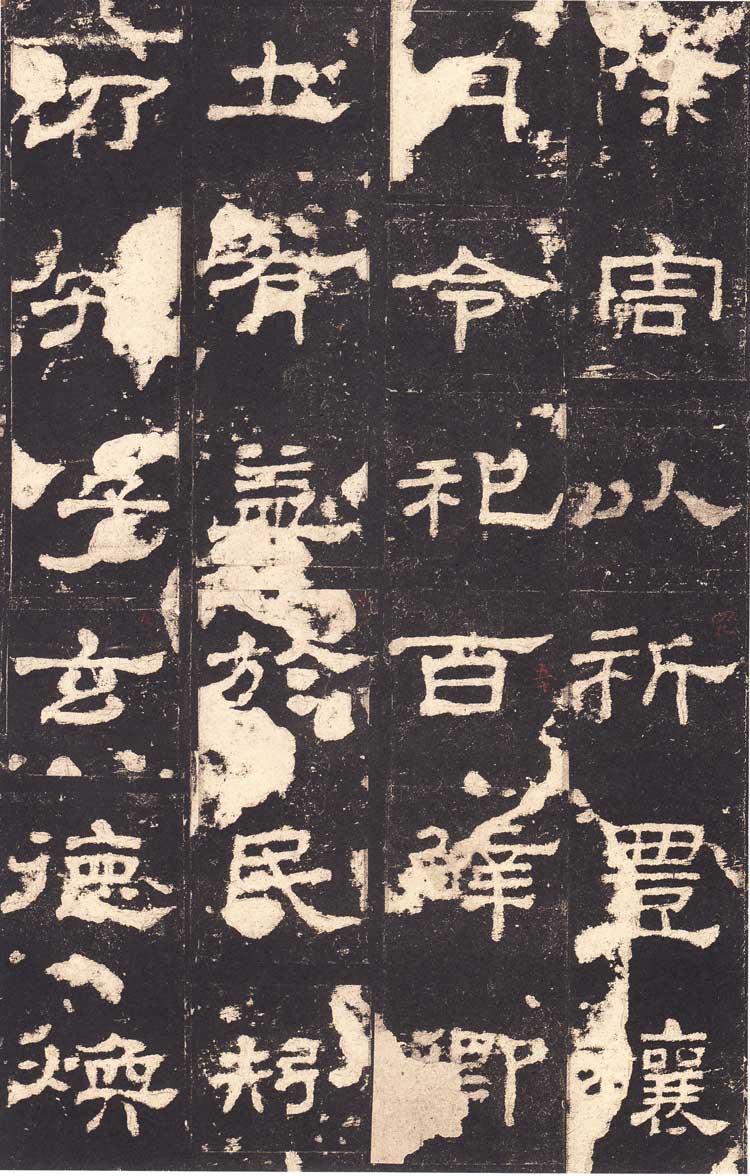 除害以祈豊穰
月令祀百辟卿
士有益於民矧
乃孔子玄德煥